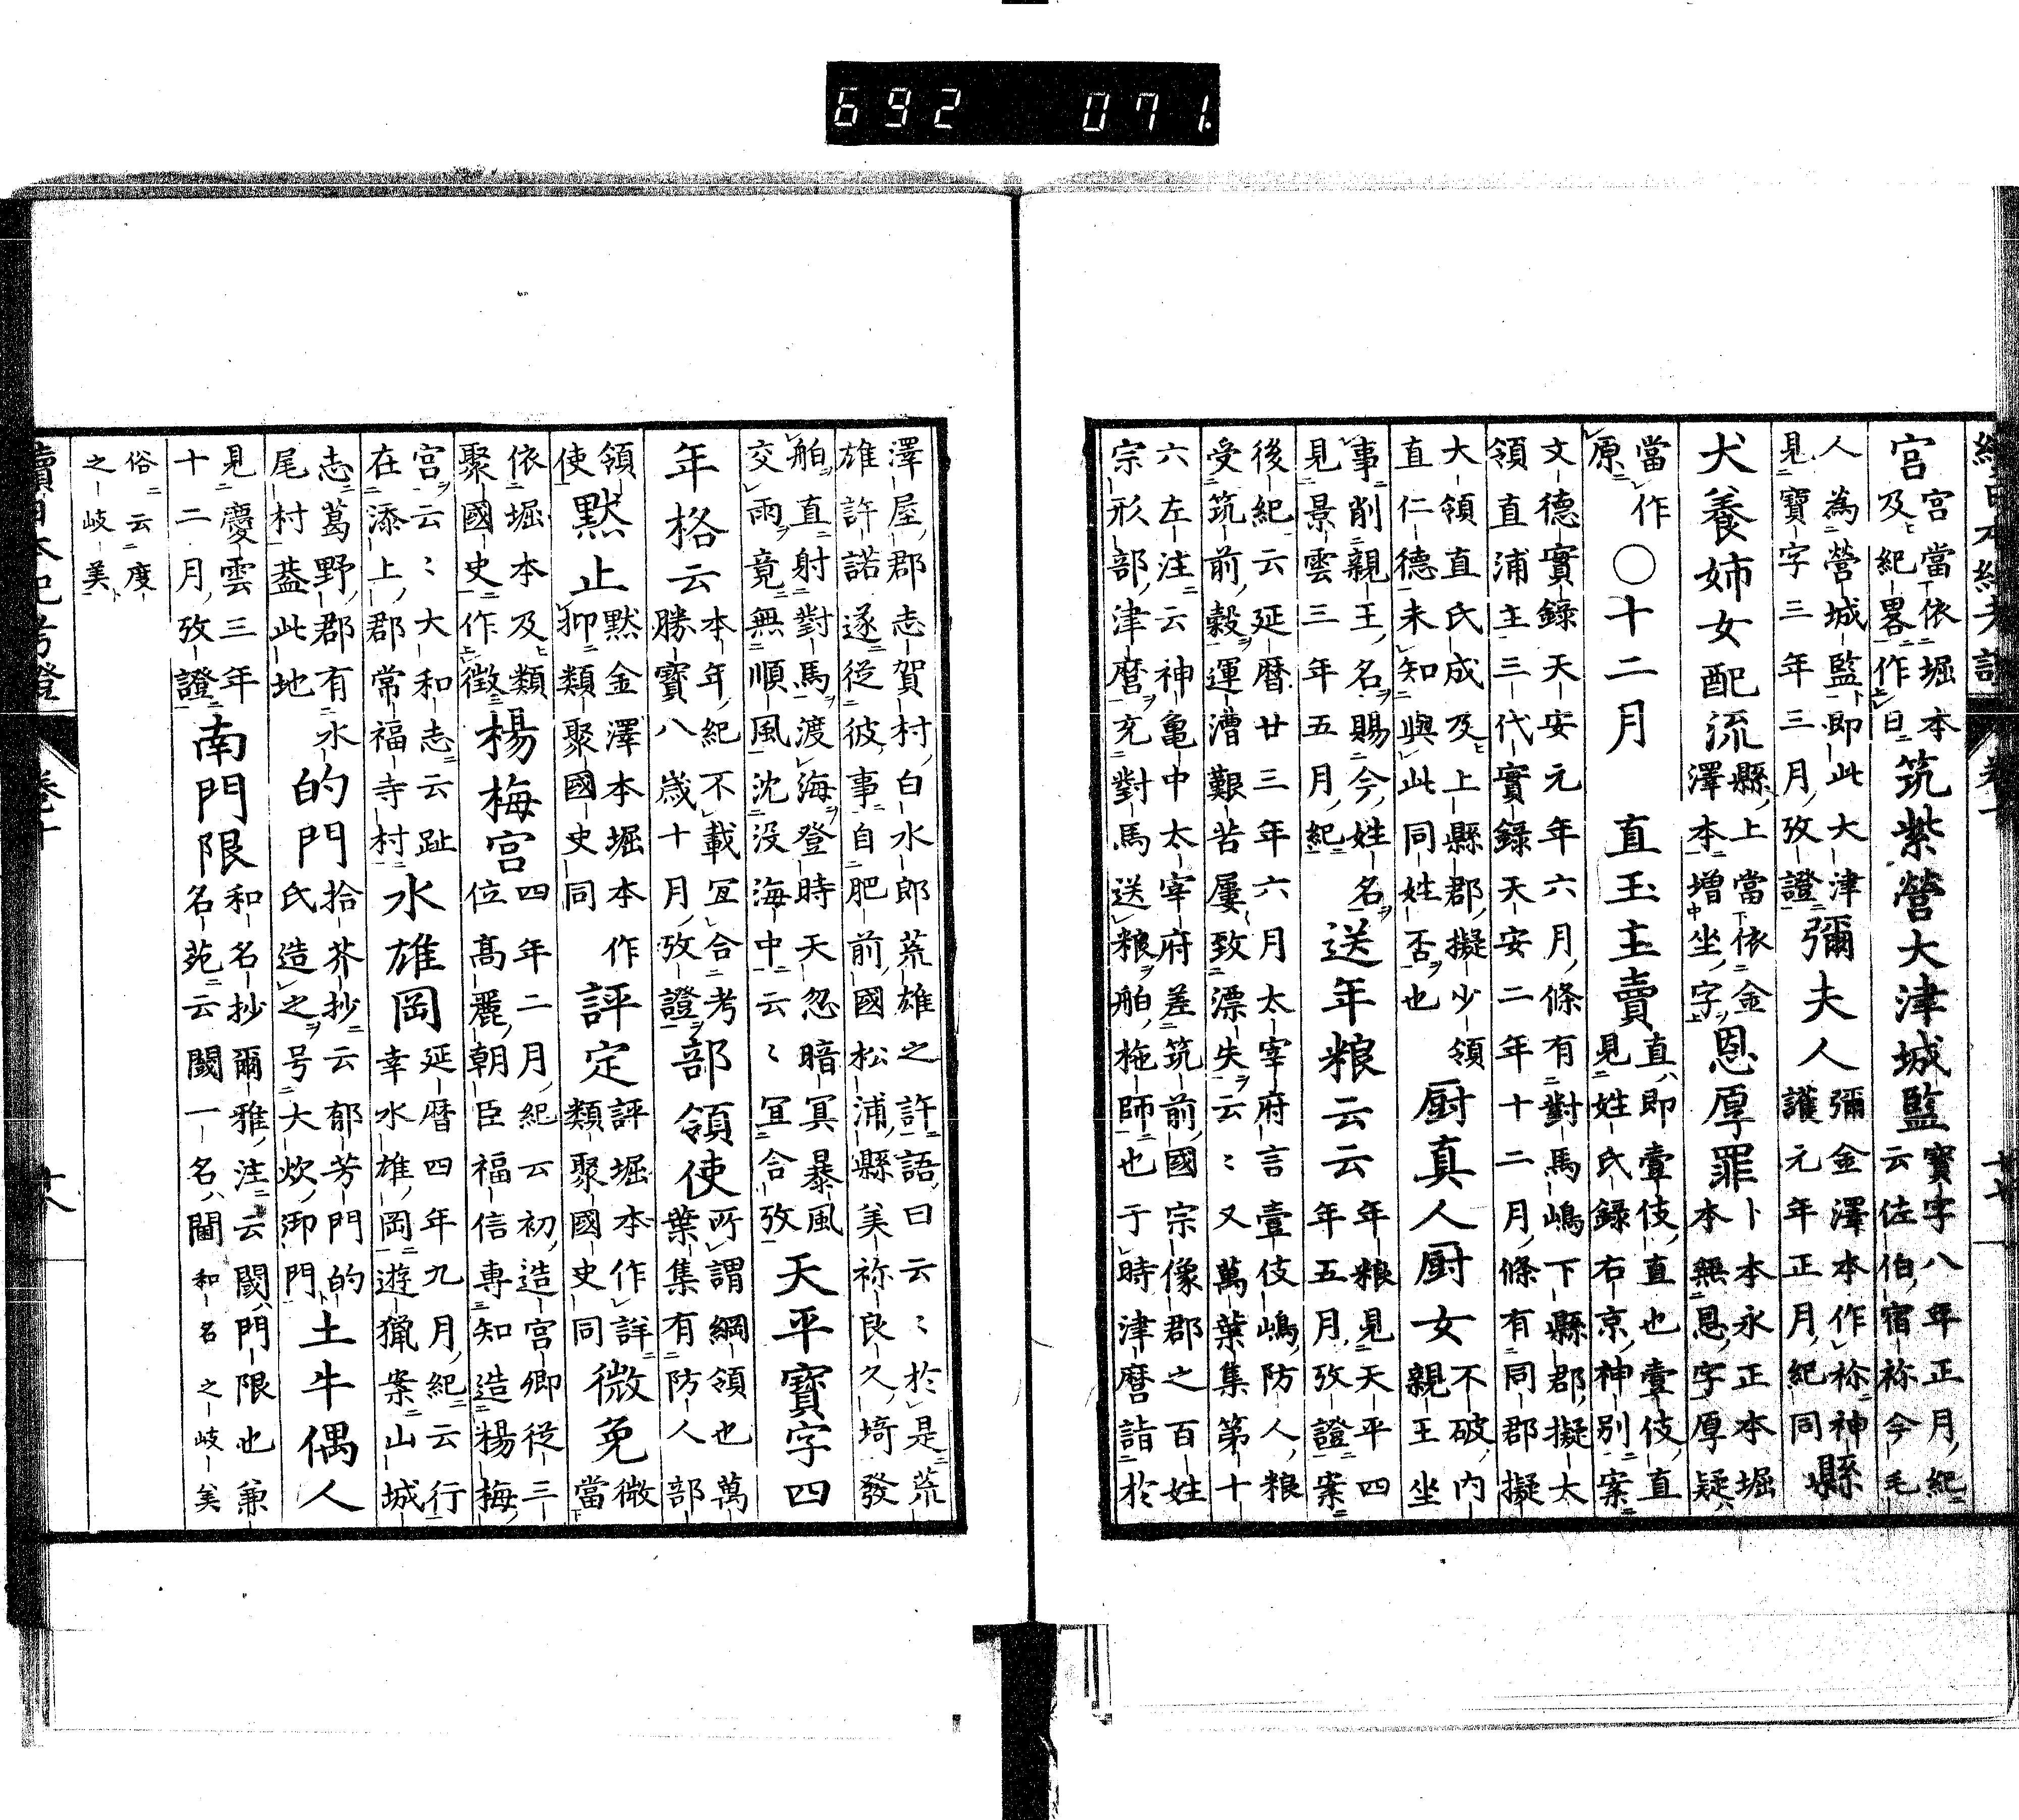 宮
宮當依堀本
及紀畧作曰
筑紫營大津城監
寶字八年正月紀
云佐伯宿祢今毛
人為營城監即此大津
見寶字三年三月攷證
彌夫人
彌金澤本作祢神
護元年正月紀同
縣
犬養姉女配流
縣上當依金
澤本增中坐字
恩厚罪
卜本永正本堀
本無恩字厚疑
當作
原
〇十二月
直玉主賣
直即壹伎直也壹伎直
見姓氏録右京神別案
文德實錄天安元年六月條有對馬嶋下縣郡擬太
領直浦主三代實錄天安二年十二月條有同郡擬
大領直氏成及上縣郡擬少領
直仁德未知與此同姓否也
厨真人厨女
不破内
親王坐
事削親王名賜今姓名
見景雲三年五月紀
送年粮云云
年粮見天平四
年五月攷證案
後紀云延曆廿三年六月太宰府言壹伎嶋防人粮
受筑前穀運漕艱苦屢致漂失云〻又萬葉集第十
六左注云神亀中太宰府差筑前國宗像郡之百姓
宗形部津麿充對馬送粮舶柂師也于時津麿詣於
澤屋郡志賀村白水郎荒雄之許語曰云〻於是荒
雄許諾遂従彼事自肥前國松浦縣美祢良久埼發
舶直射對馬渡海登時天忽暗冥暴風
交雨竟無順風沈没海中云〻冝合攷
天平寶字四
年格云
本年紀不載冝合考
勝寶八歲十月攷證
部領使
所謂綱領也萬
葉集有防人部
領
使
黙止
黙金澤本堀本
抑類聚國史同
作
評定
評堀本作詳
類聚國史同
微免
微
當
依堀本及類
聚國史作徴
楊梅宮
四年二月紀云初造宮卿従三
位髙麗朝臣福信專知造楊梅
宮云〻大和志云趾
在添上郡常福寺村
水雄岡
延曆四年九月紀云行
幸水雄岡遊獵案山城
志葛野郡有水
尾村葢此地
的門
拾芥抄云郁芳門的
氏造之号大炊御門
土牛偶人
見慶雲三年
十二月攷證
南門限
和名抄爾雅注云閾門限也兼
名苑云閾一名閫和名之岐美
俗云度
之岐美